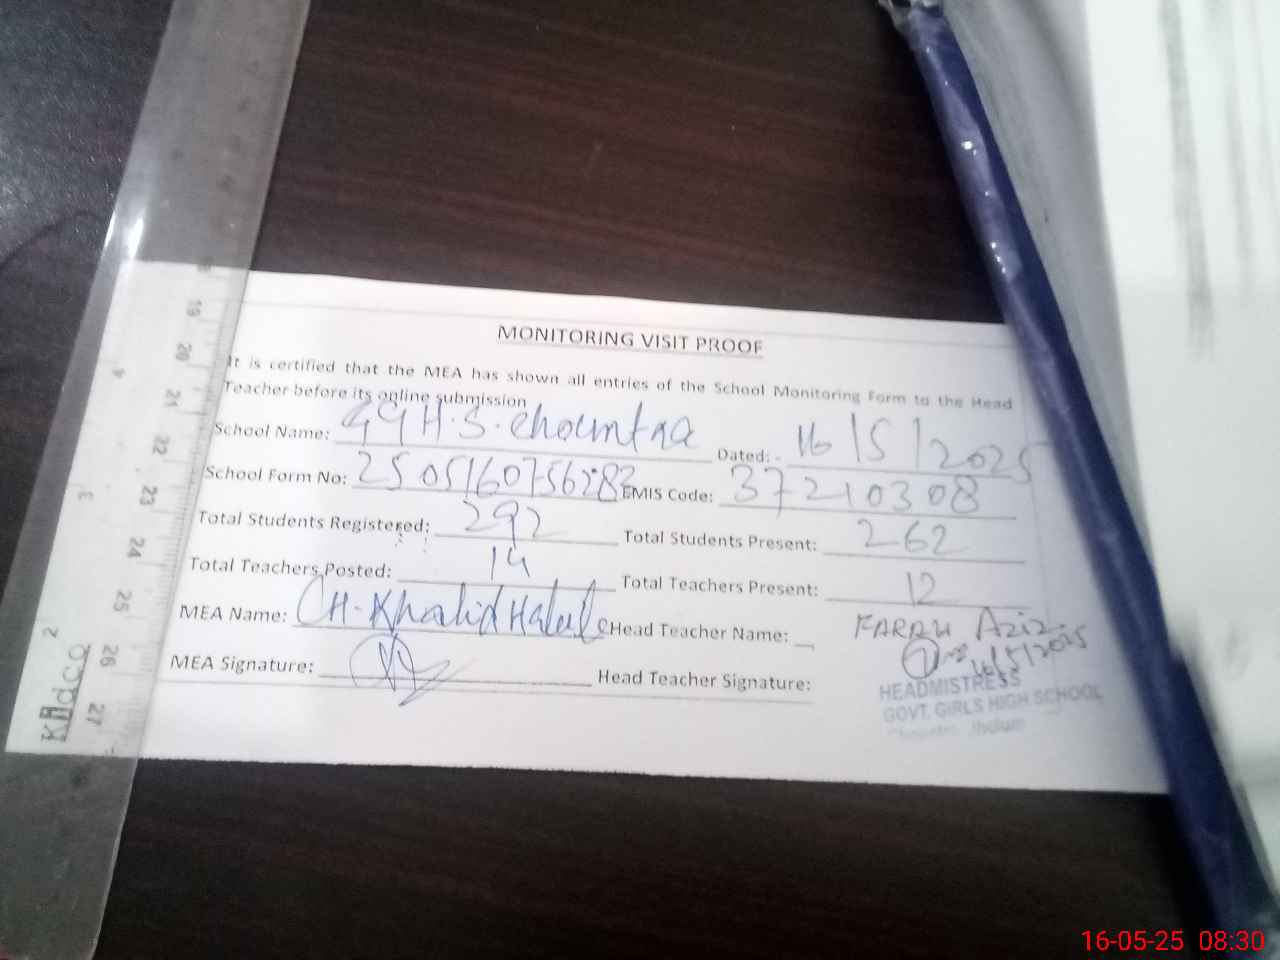 MONITORING VISIT PROOF
It is certified that the MEA has shown all entries of the School Monitoring Form to the Head
Teacher before its online submission
School Name: GGH.S. Choumtra Dated: - 16/5/2025
School Form No: 250516075628 EMIS Code: 37210308
Total Students Registered: 292 Total Students Present: 262
Total Teachers Posted: 14 Total Teachers Present: 12
MEA Name: CH. Khalid Head Teacher Name: FARAH Aziz
MEA Signature: Head Teacher Signature: 16/5/2025
HEADMISTRESS
GOVT. GIRLS HIGH SCHOOL
Jhelum
19
20
21
22
23
24
25
26
27
4
3
2
Kidco
16-05-25 08:30